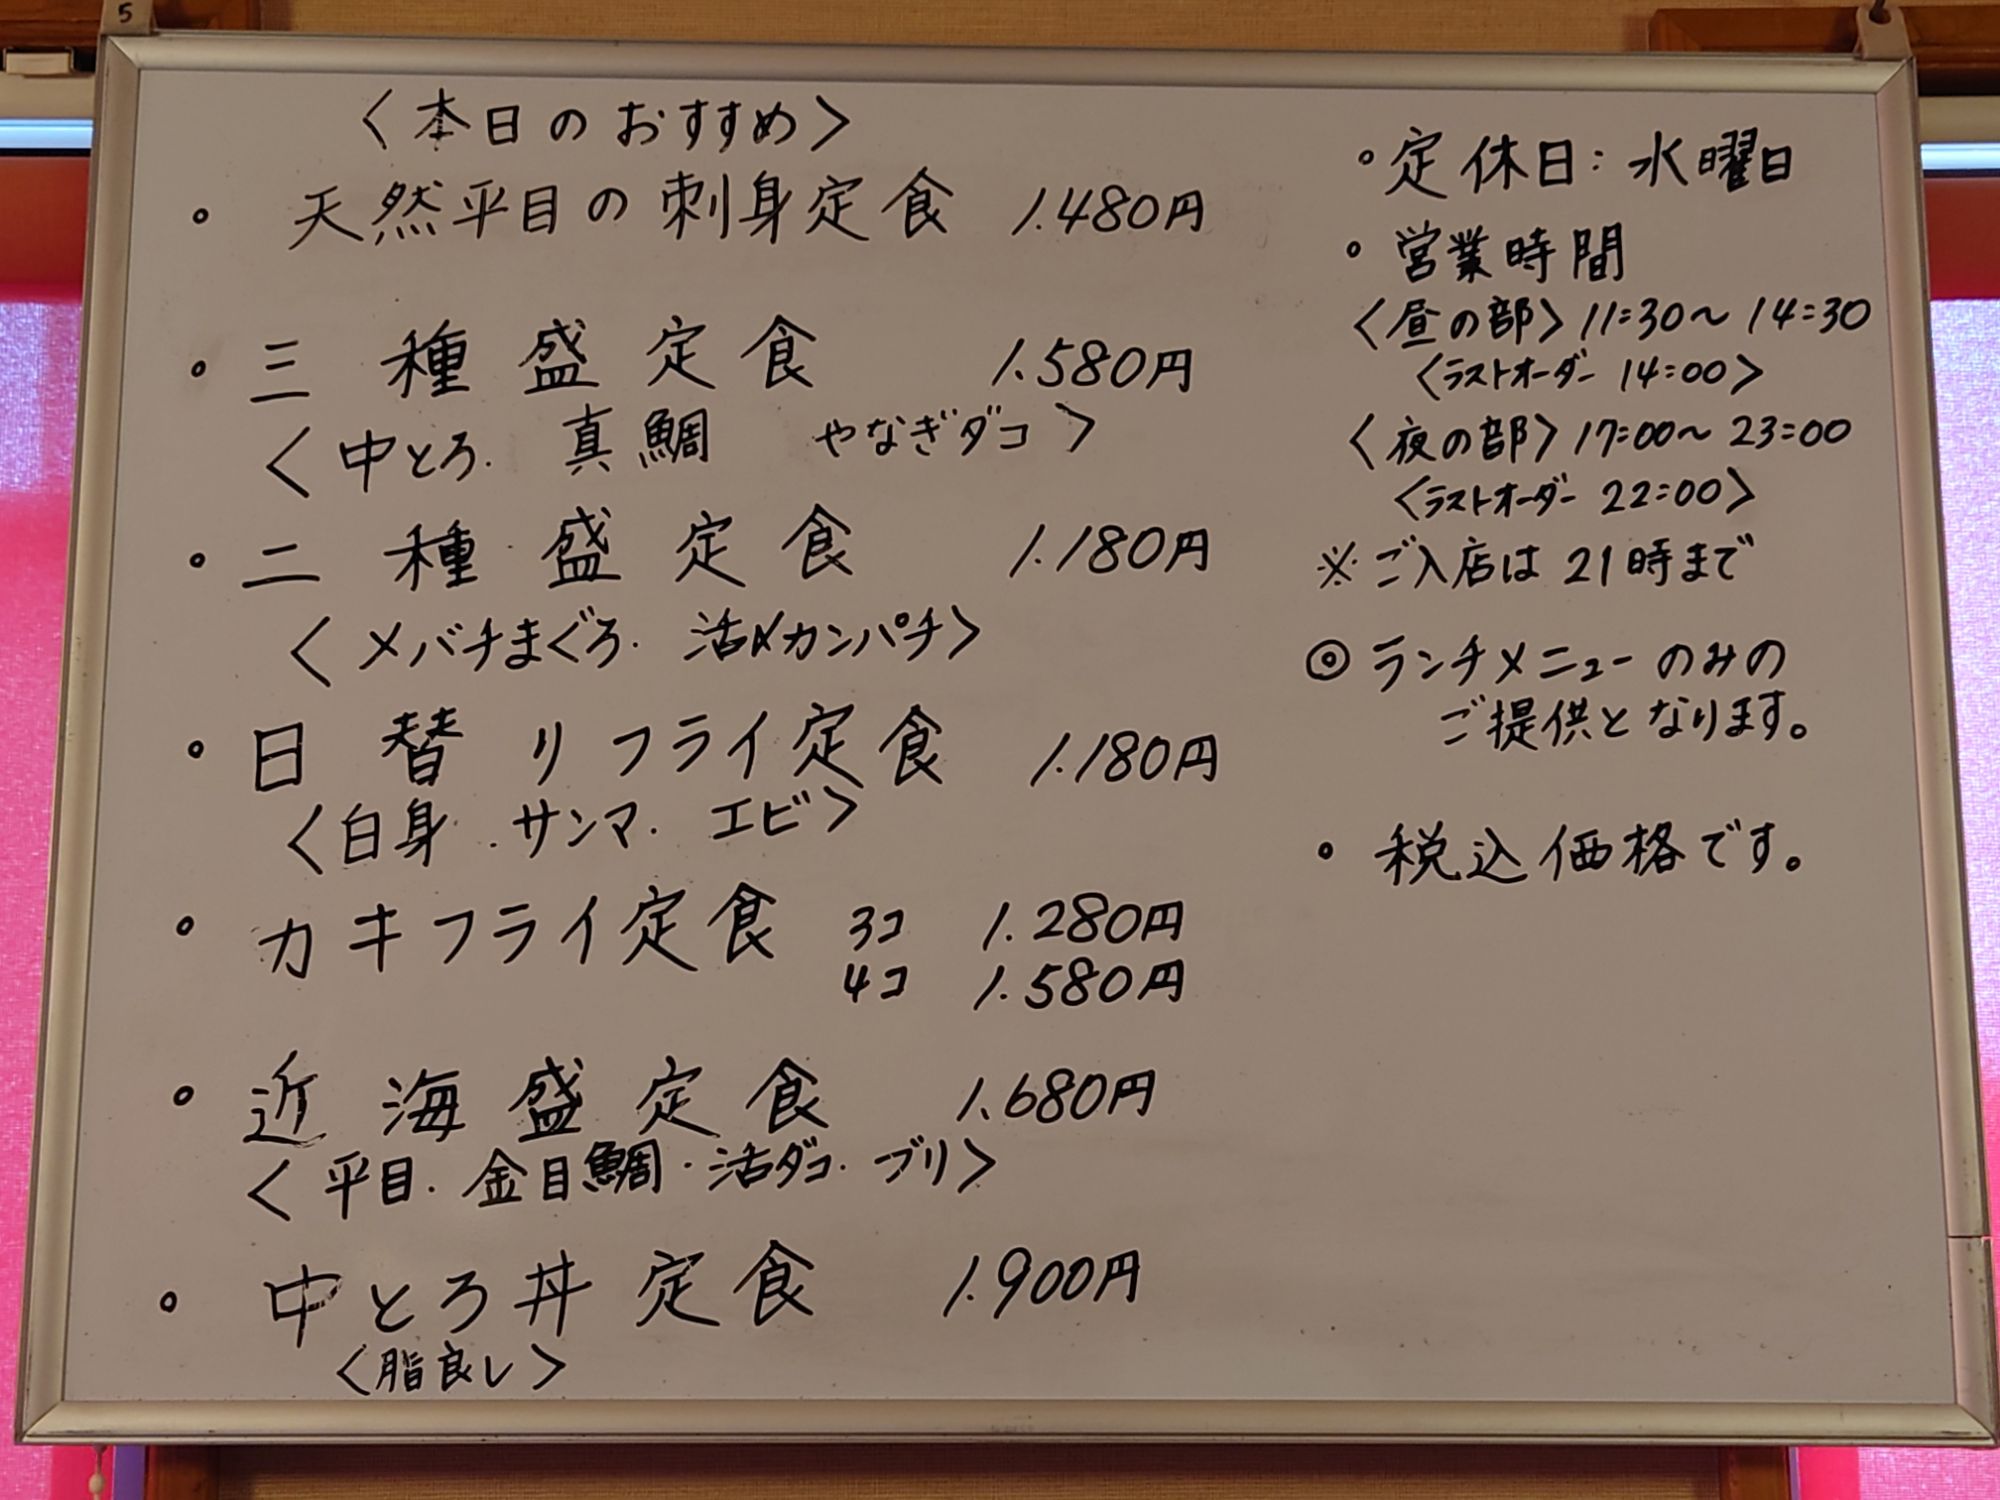 5
〈本日のおすすめ〉
◦ 天然平目の刺身定食 1.480円
・三種盛定食 1.580円
〈中とろ. 真鯛 やなぎダコ〉
・二種盛定食 1.180円
〈メバチまぐろ. 活〆カンパチ〉
・日替リフライ定食 1.180円
〈白身.サンマ.エビ〉
・カキフライ定食 3コ 1.280円
4コ 1.580円
・近海盛定食 1.680円
〈平目.金目鯛・活ダコ.ブリ〉
・中とろ丼定食 1.900円
〈脂良し〉
・定休日:水曜日
・営業時間
〈昼の部〉11:30〜14:30
〈ラストオーダー 14:00〉
〈夜の部〉17:00〜23:00
〈ラストオーダー 22:00〉
※ご入店は21時まで
◎ランチメニューのみの
ご提供となります。
・税込価格です。